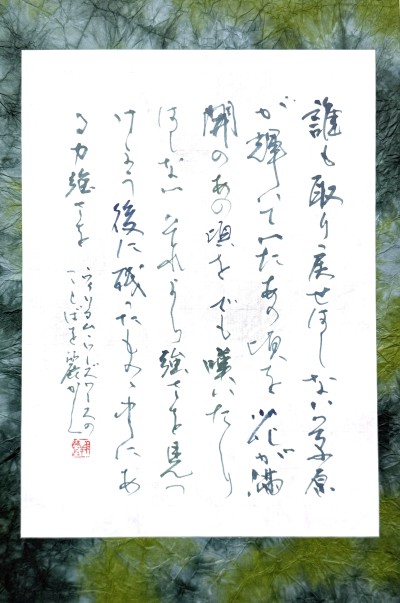 誰も取り戻せはしない草原
が輝いていたあの頃を 花が満
開のあの頃を でも嘆いたり
はしない それより強さを見つ
けよう 後に残ったものゝ中にあ
る力強さを
ウィリアム・ワーズワースの
ことばを 麗